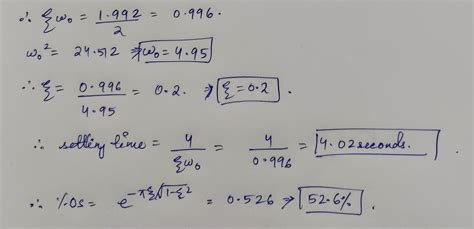 ∴ ξω₀ = 1.992/2 = 0.996.
ω₀² = 24.512 ⇒ ω₀ = 4.95
∴ ξ = 0.996/4.95 = 0.2. ⇒ ξ = 0.2.
∴ settling time = 4/ξω₀ = 4/0.996 = 4.02 seconds.
∴ %OS = e^(-πξ√(1-ξ²)) = 0.526 ⇒ 52.6%.